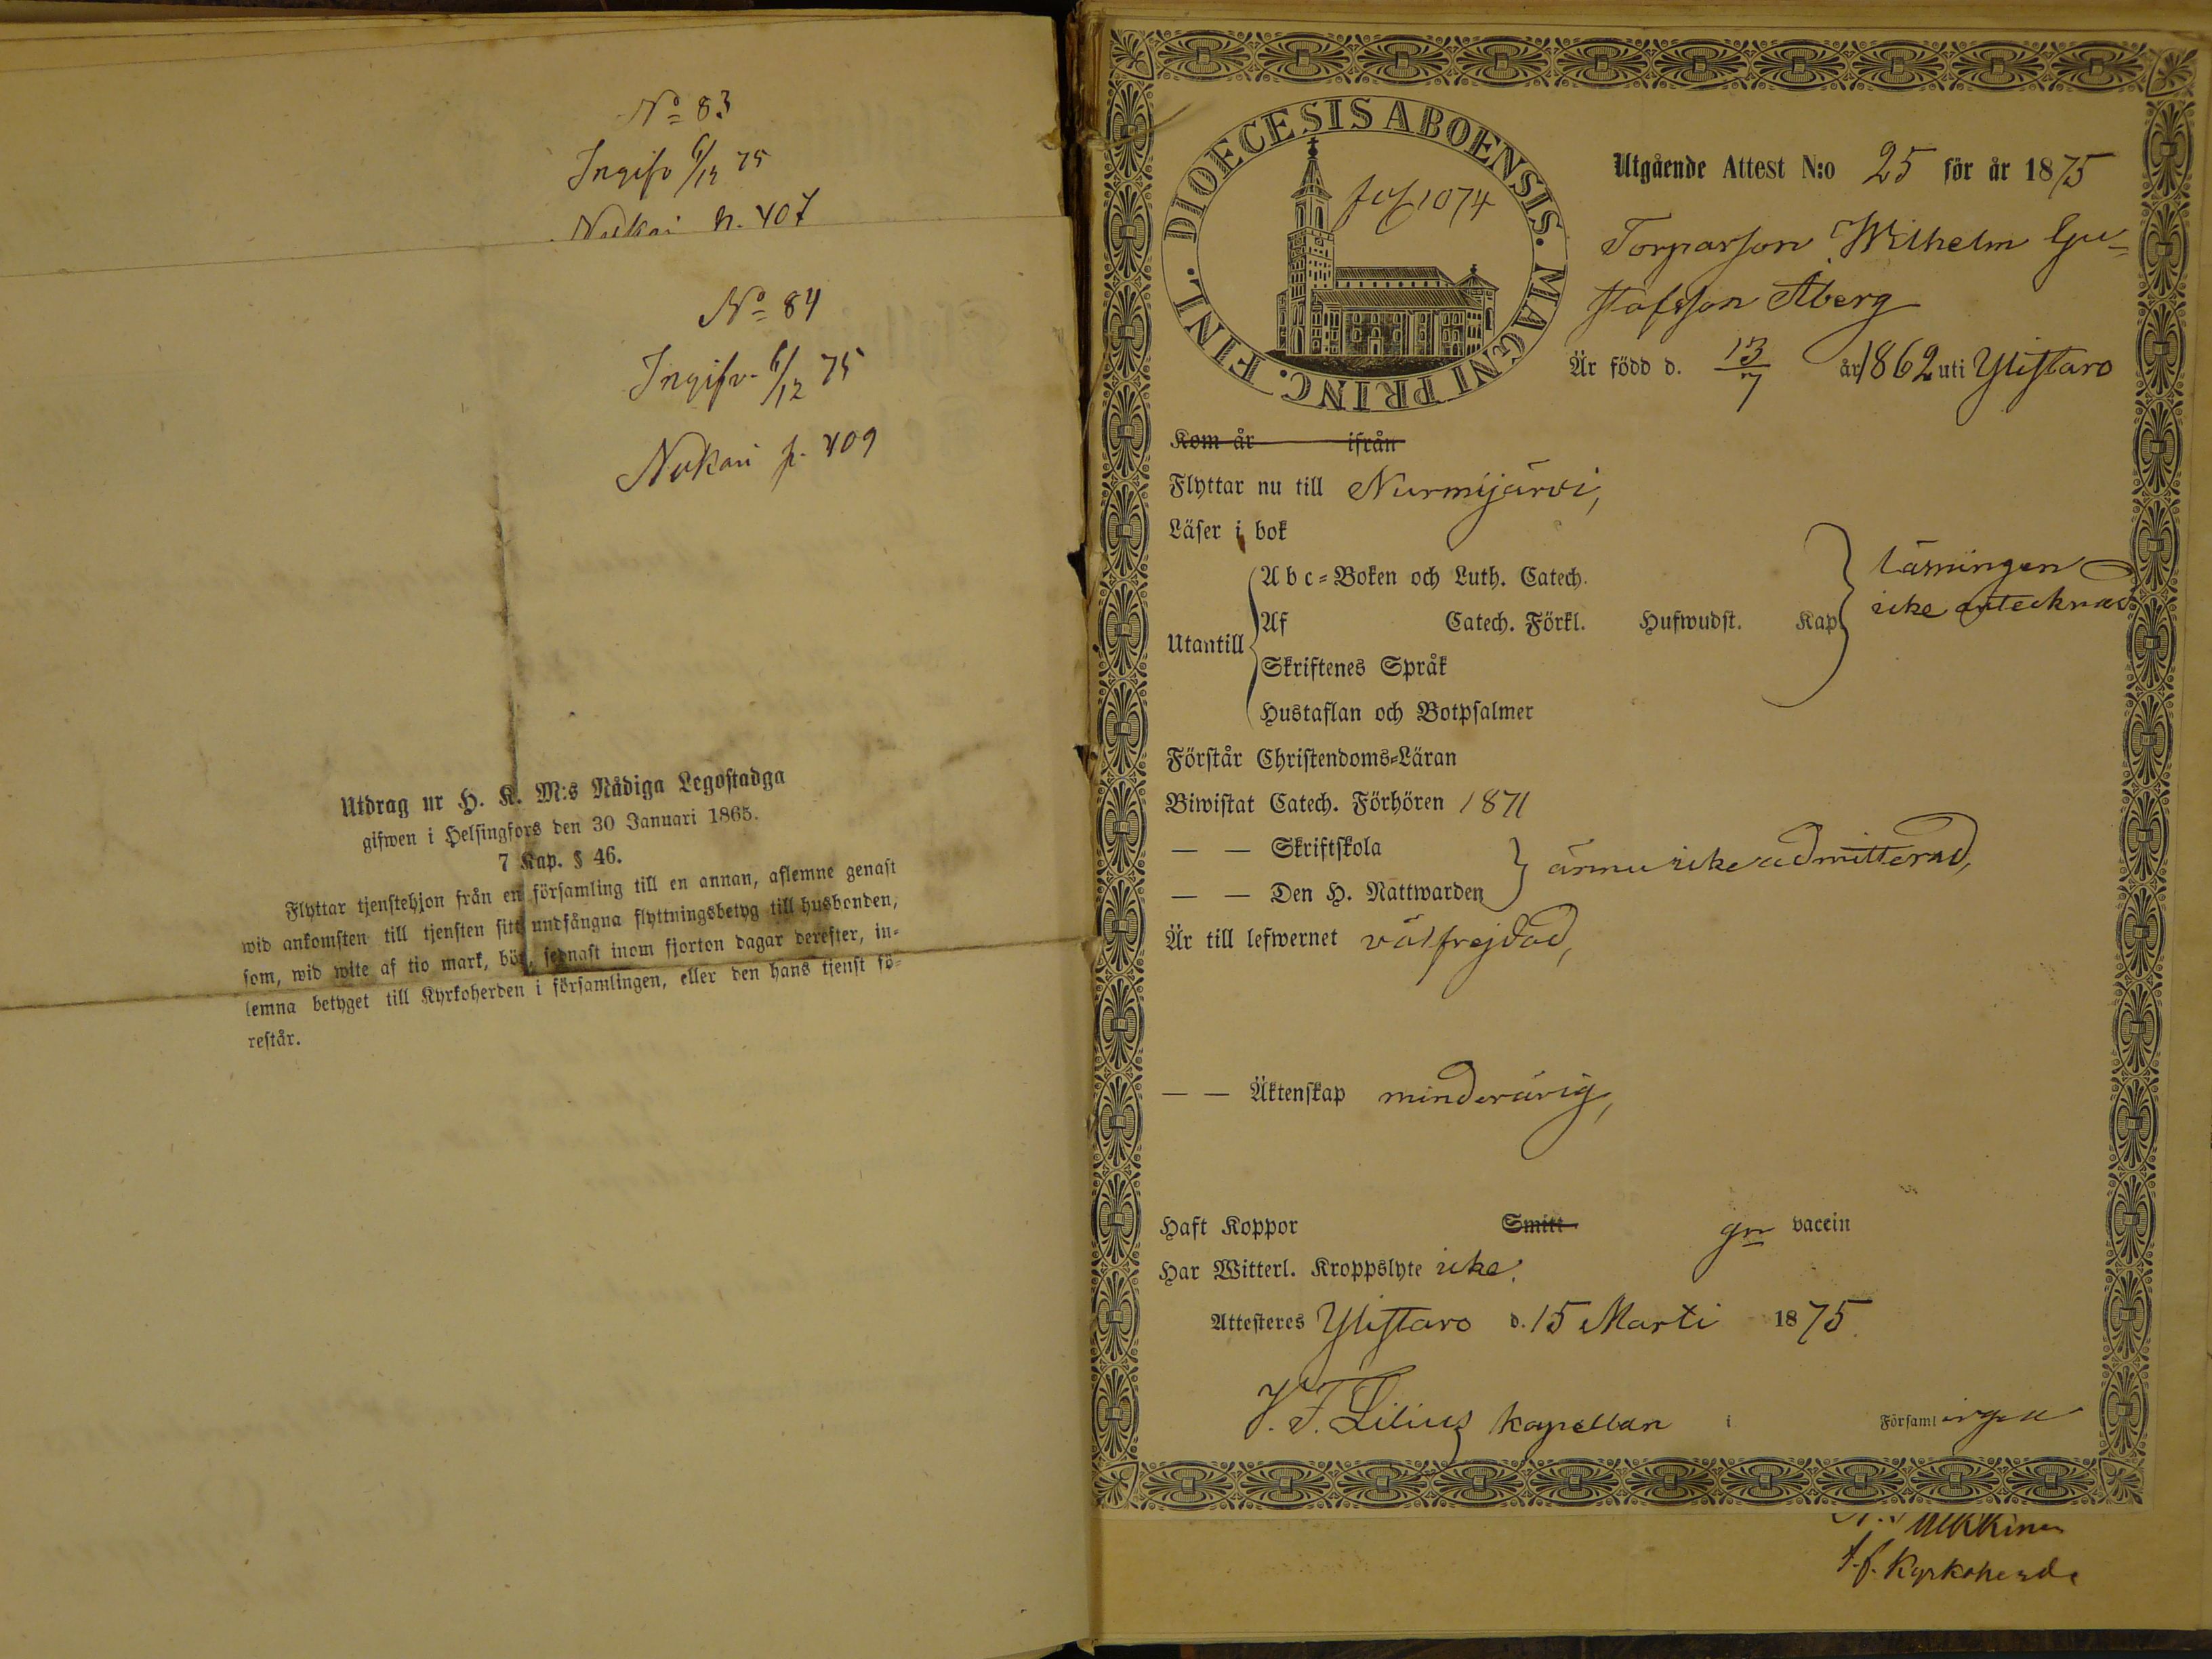 No 83
Ingifv 6/12 75
Nukari p. 407
No 84
Ingifv. 6/12 75
Nukari p. 409
Utdrag ur H. K. M:s Nådiga Legostadga
gifwen i Helsingfors den 30 Januari 1865.
7 Kap. § 46.
Flyttar tjenstehjon från en församling till en annan, aflemne genast
wid ankomsten till tjensten sitt undfångna flyttningsbetyg till husbonden,
som, wid wite af tio mark, bör, sednast inom fjorton dagar derefter, in-
lemna betyget till Kyrkoherden i församlingen, eller den hans tjenst fö-
restår.
DIOECESIS ABOENSIS. MAGNI PRINC. FINL.
1074
Utgående Attest N:o 25 för år 1875
Torparson Wilhelm Gu-
stafsson Åberg
Är född d. 13/7 år 1862 uti Ylistaro
Kom år ifrån
Flyttar nu till Nurmijärvi,
Läser i bok
Utantill
A b c-Boken och Luth. Catech.
Af Catech. Förkl. Hufwudst. Kap
Skriftenes Språk
Hustaflan och Botpsalmer
läsningen
icke antecknad
Förstår Christendoms-Läran
Biwistat Catech. Förhören 1871
— — Skriftskola
— — Den H. Nattwarden
ännu icke admitterad,
Är till lefwernet välfrejdad,
— — Äktenskap minderårig,
Haft Koppor Smitt gn vaccin
Har Witterl. Kroppslyte icke.
Attesteres Ylistaro d. 15 Marti 1875.
V. F. Lilius kapellan i Församlingen
t.f. Kyrkoherde